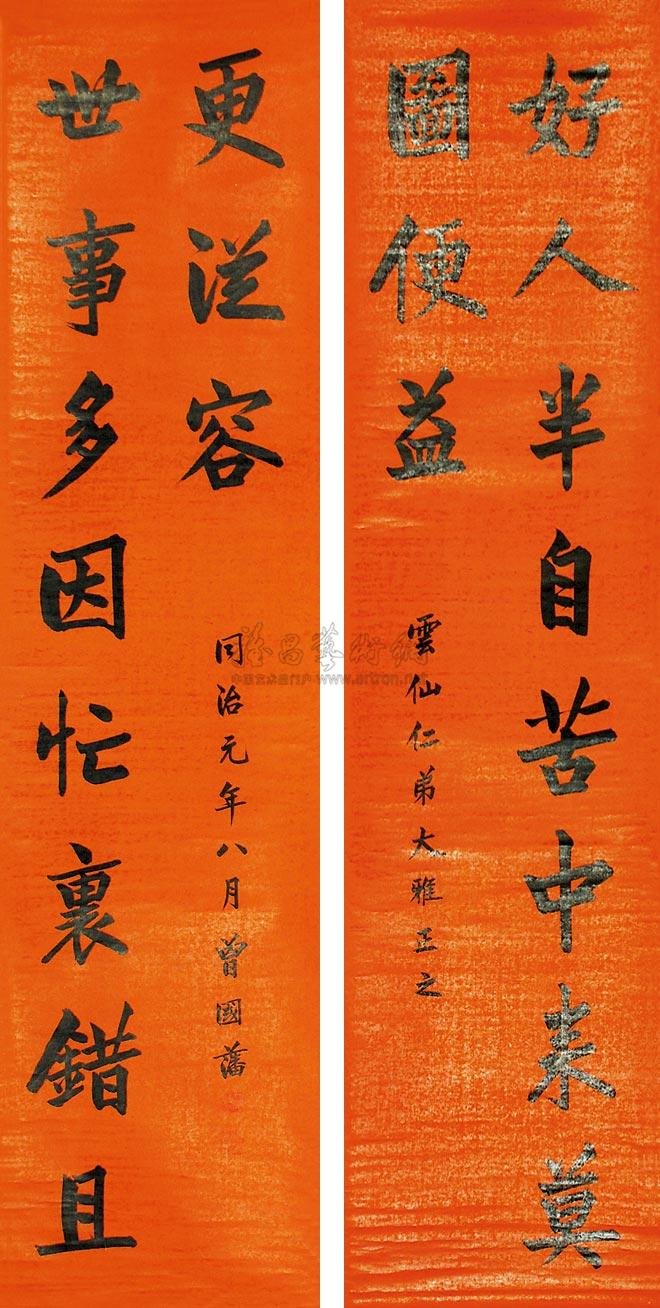 好人半自苦中来莫
圖便益
雲仙仁弟大雅正之
世事多因忙裏錯且
更從容
同治元年八月曾國藩
雅昌藝術網
中国艺术品门户 www.artron.net